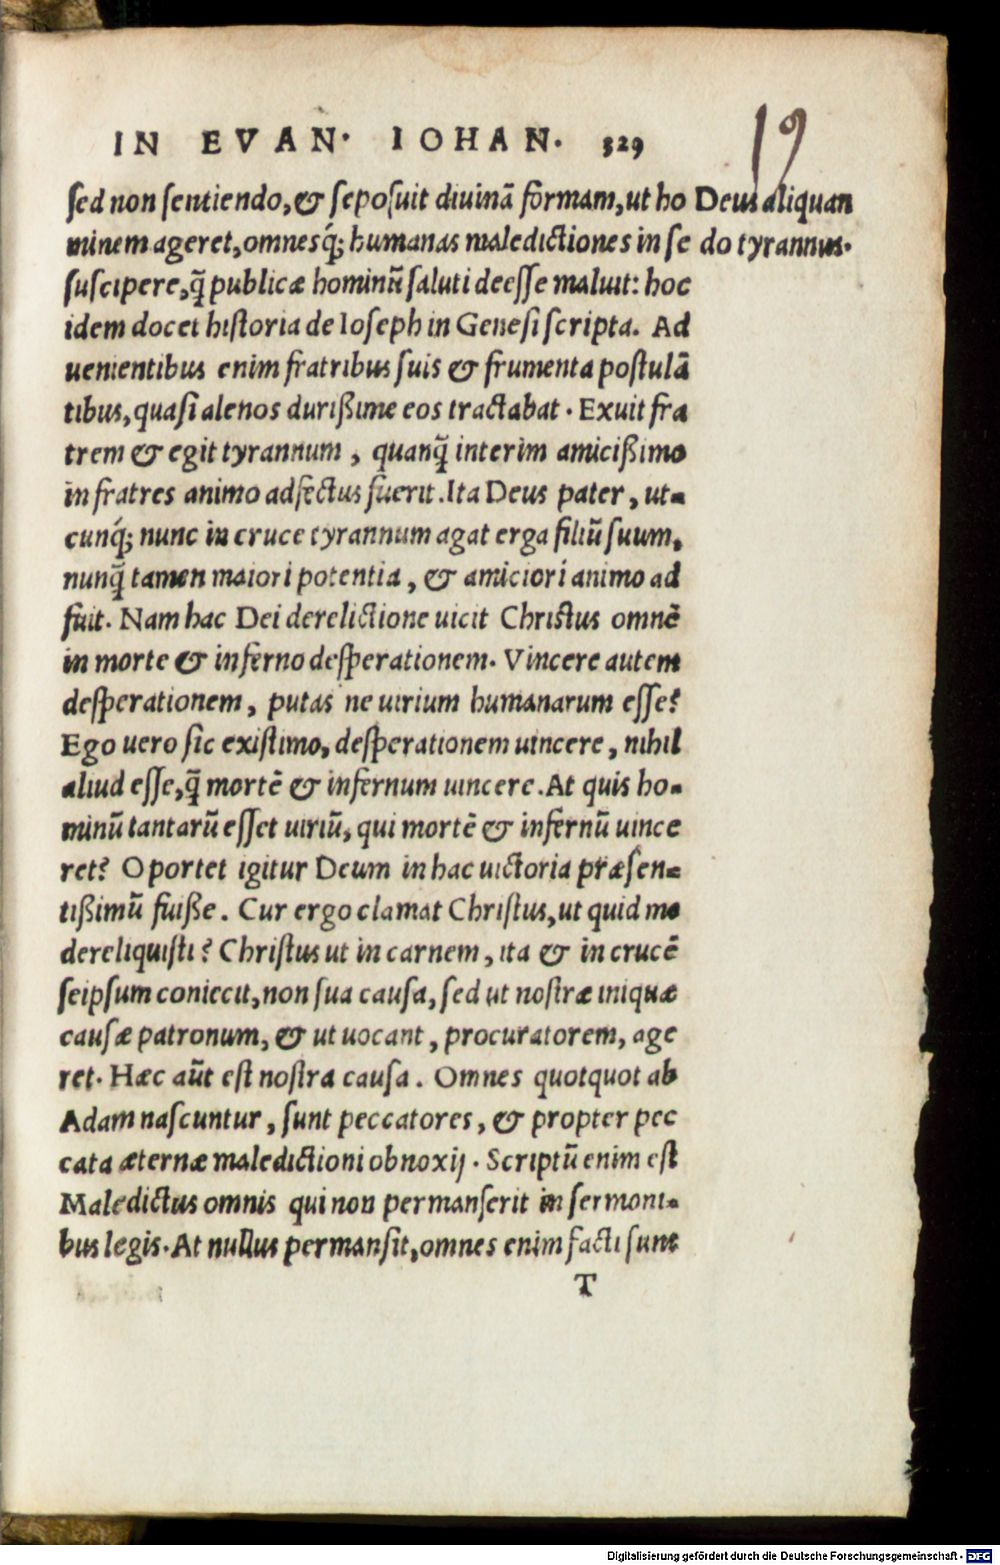 IN EVAN. IOHAN. 329
19
sed non sentiendo, & seposuit diuinā formam, ut ho
minem ageret, omnesq́; humanas maledictiones in se
suscipere, q̃ publicæ hominũ saluti deesse maluit: hoc
idem docet historia de Ioseph in Genesi scripta. Ad
uenientibus enim fratribus suis & frumenta postulã
tibus, quasi alenos durißime eos tractabat. Exuit fra
trem & egit tyrannum, quanq̃ interim amicißimo
in fratres animo adfectus fuerit. Ita Deus pater, ut-
cunq́; nunc in cruce tyrannum agat erga filiũ suum,
nunq̃ tamen maiori potentia, & amiciori animo ad
fuit. Nam hac Dei derelictione uicit Christus omnẽ
in morte & inferno desperationem. Vincere autem
desperationem, putas ne uirium humanarum esse?
Ego uero sic existimo, desperationem uincere, nihil
aliud esse, q̃ mortẽ & infernum uincere. At quis ho-
minũ tantarũ esset uiriũ, qui mortẽ & infernũ uince
ret? Oportet igitur Deum in hac uictoria præsen-
tißimũ fuiße. Cur ergo clamat Christus, ut quid me
dereliquisti? Christus ut in carnem, ita & in crucẽ
seipsum coniecit, non sua causa, sed ut nostræ iniquæ
causæ patronum, & ut uocant, procuratorem, age
ret. Hæc aũt est nostra causa. Omnes quotquot ab
Adam nascuntur, sunt peccatores, & propter pec
cata æternæ maledictioni obnoxij. Scriptũ enim est
Maledictus omnis qui non permanserit in sermoni-
bus legis. At nullus permansit, omnes enim facti sunt
T
Deus aliquan
do tyrannus.
Digitalisierung gefördert durch die Deutsche Forschungsgemeinschaft - DFG